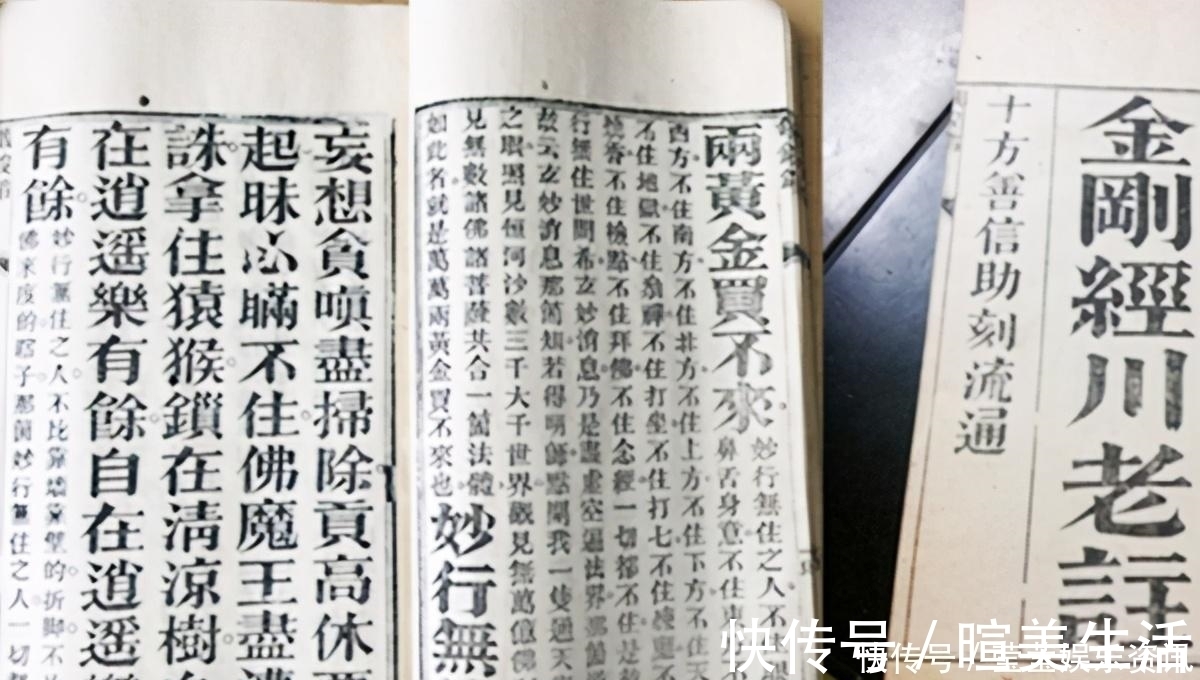 金剛經川老註
十方善信助刻流通
兩黃金買不來
妙行無住之人
鼻舌身意不住東
西方不住南方不住北方不住上方不住下方不住
不住地獄不住參禪不住打坐不住打七不住
燒香不住檢點不住拜佛不住念經一切都不住是
行無住世間希玄妙消息乃是盡虛空遍法界那箇
玄妙消息那箇如若得明師點開我一隻通天
之眼照見恒河沙數三千大千世界觀見無萬億佛
見無數諸佛諸菩薩共合一箇法體
妙行無
如此名就是萬萬兩黃金買不來也
妄想貪嗔盡掃除貢高休
起昧心瞞不住佛魔王盡
誅拿住猿猴鎖在清涼樹
在逍遥樂有餘自在逍遥
有餘
妙行無住之人不比靠墻靠壁的折脚不
佛來度的瞎子那箇妙行無住之人一切
快传号/暄美生活